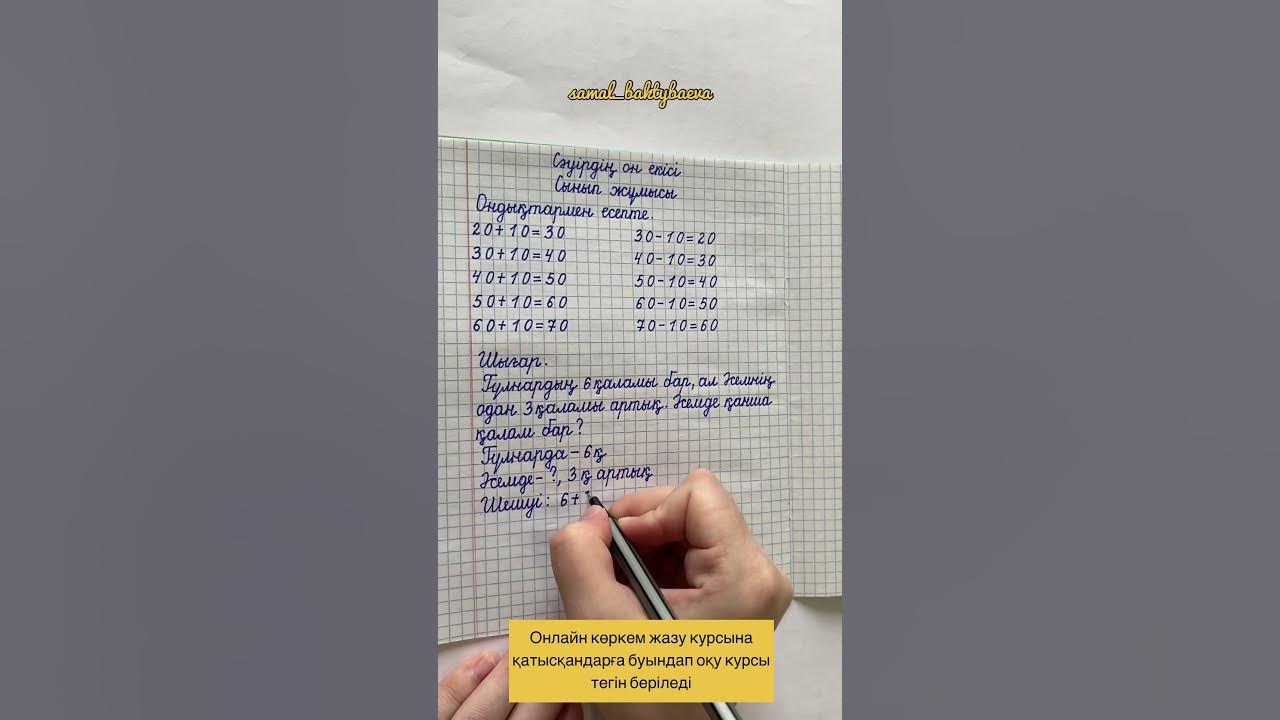 samal_baktybaeva
Сәуірдің он екісі
Сынып жұмысы
Ондықтармен есепте.
20+10=30 30-10=20
30+10=40 40-10=30
40+10=50 50-10=40
50+10=60 60-10=50
60+10=70 70-10=60
Шығар.
Гүлнардың 6 қаламы бар, ал Әсемнің
одан 3 қаламы артық. Әсемде қанша
қалам бар?
Гүлнарда - 6қ
Әсемде - ?, 3қ артық
Шешуі: 6+
Онлайн көркем жазу курсына
қатысқандарға буындап оқу курсы
тегін беріледі